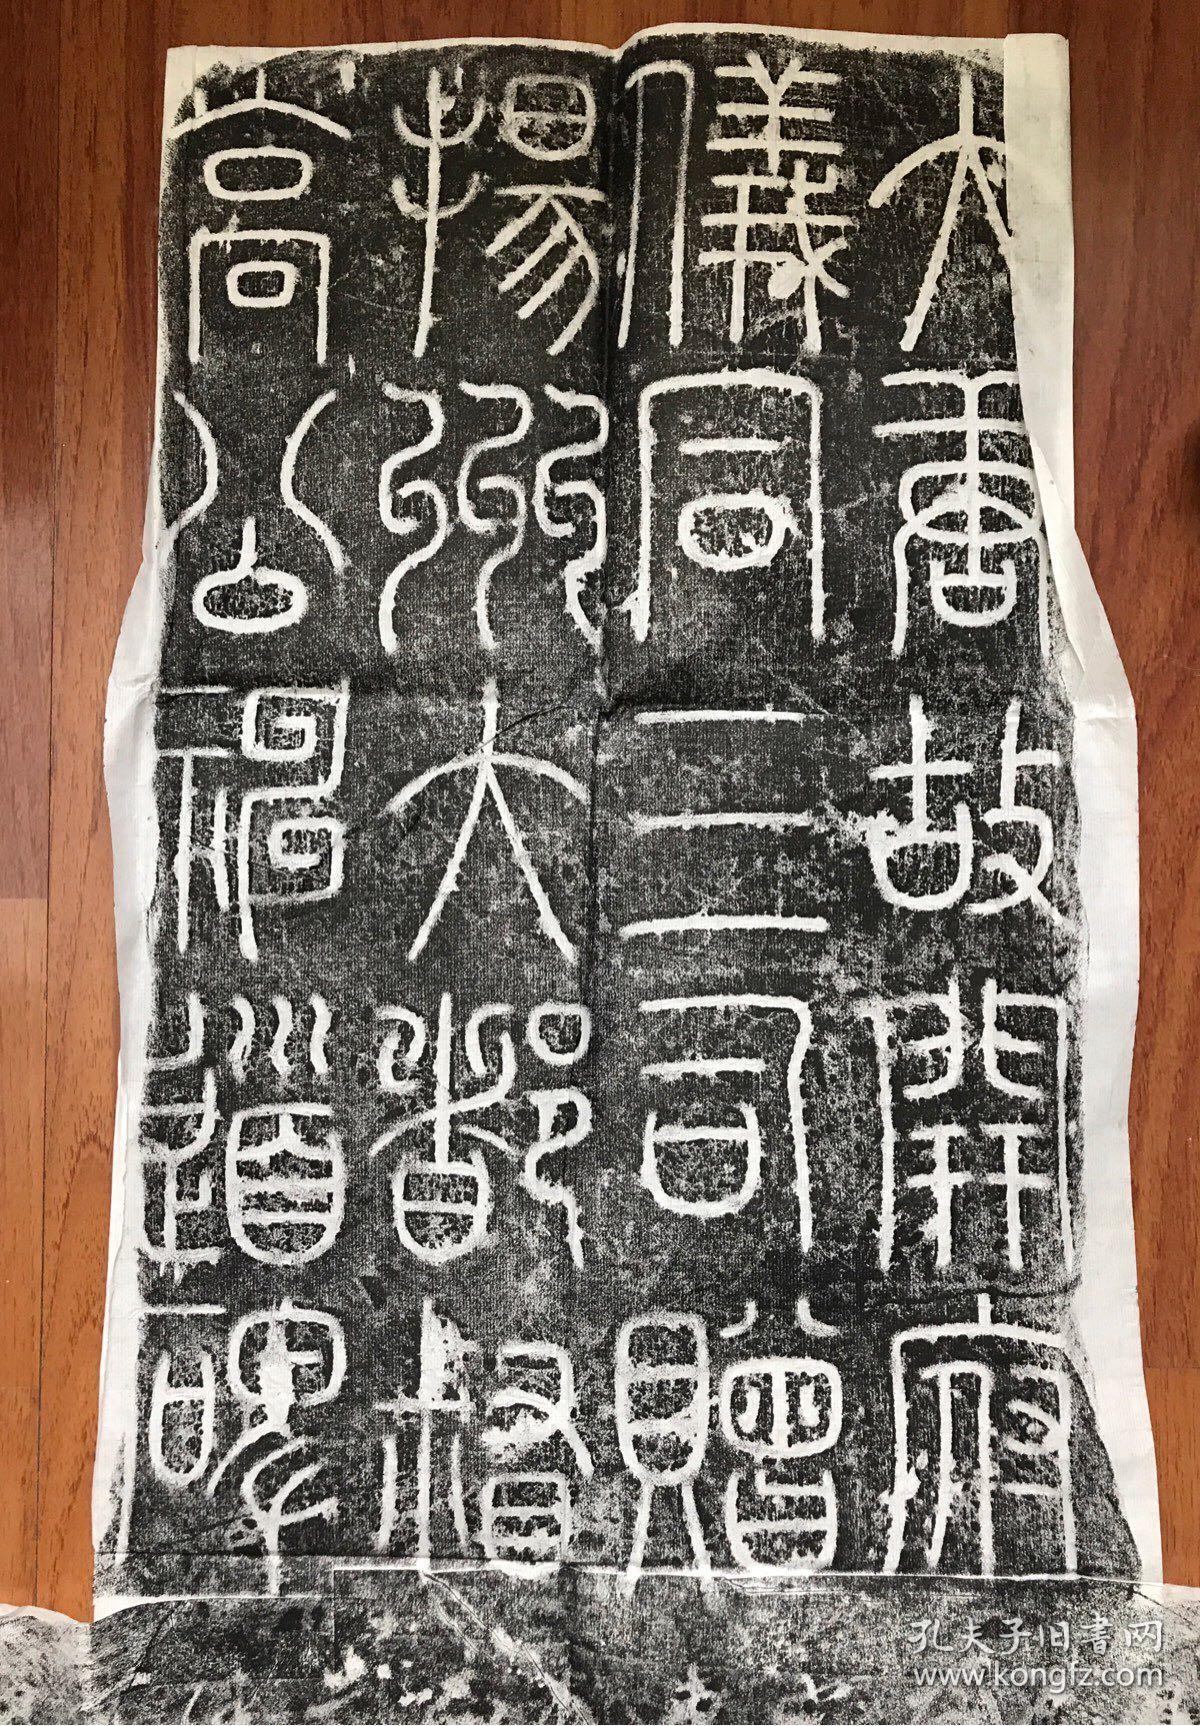 大唐故開府
儀同三司贈
揚州大都督
高公神道碑
孔夫子旧書网
www.kongfz.com